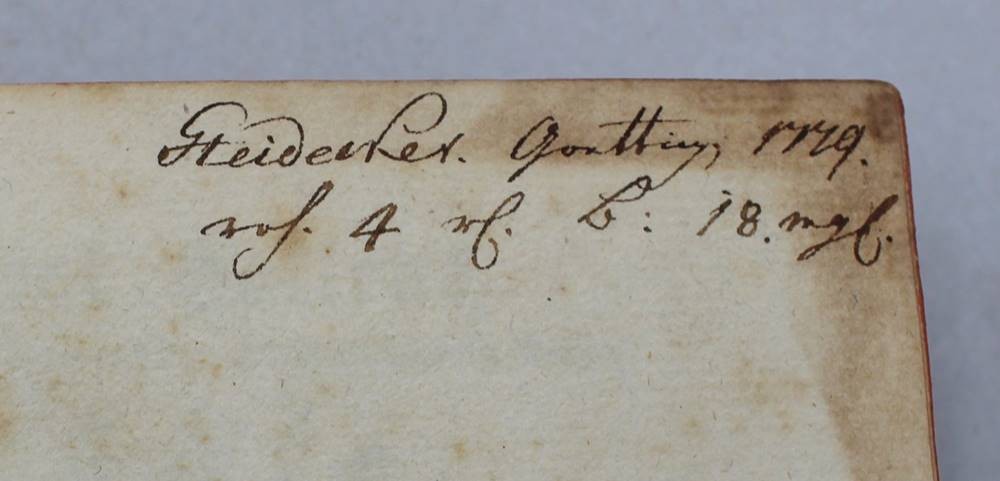 Heidecker. Goetting, 1779.
roh. 4 rl. b: 18. mgl.